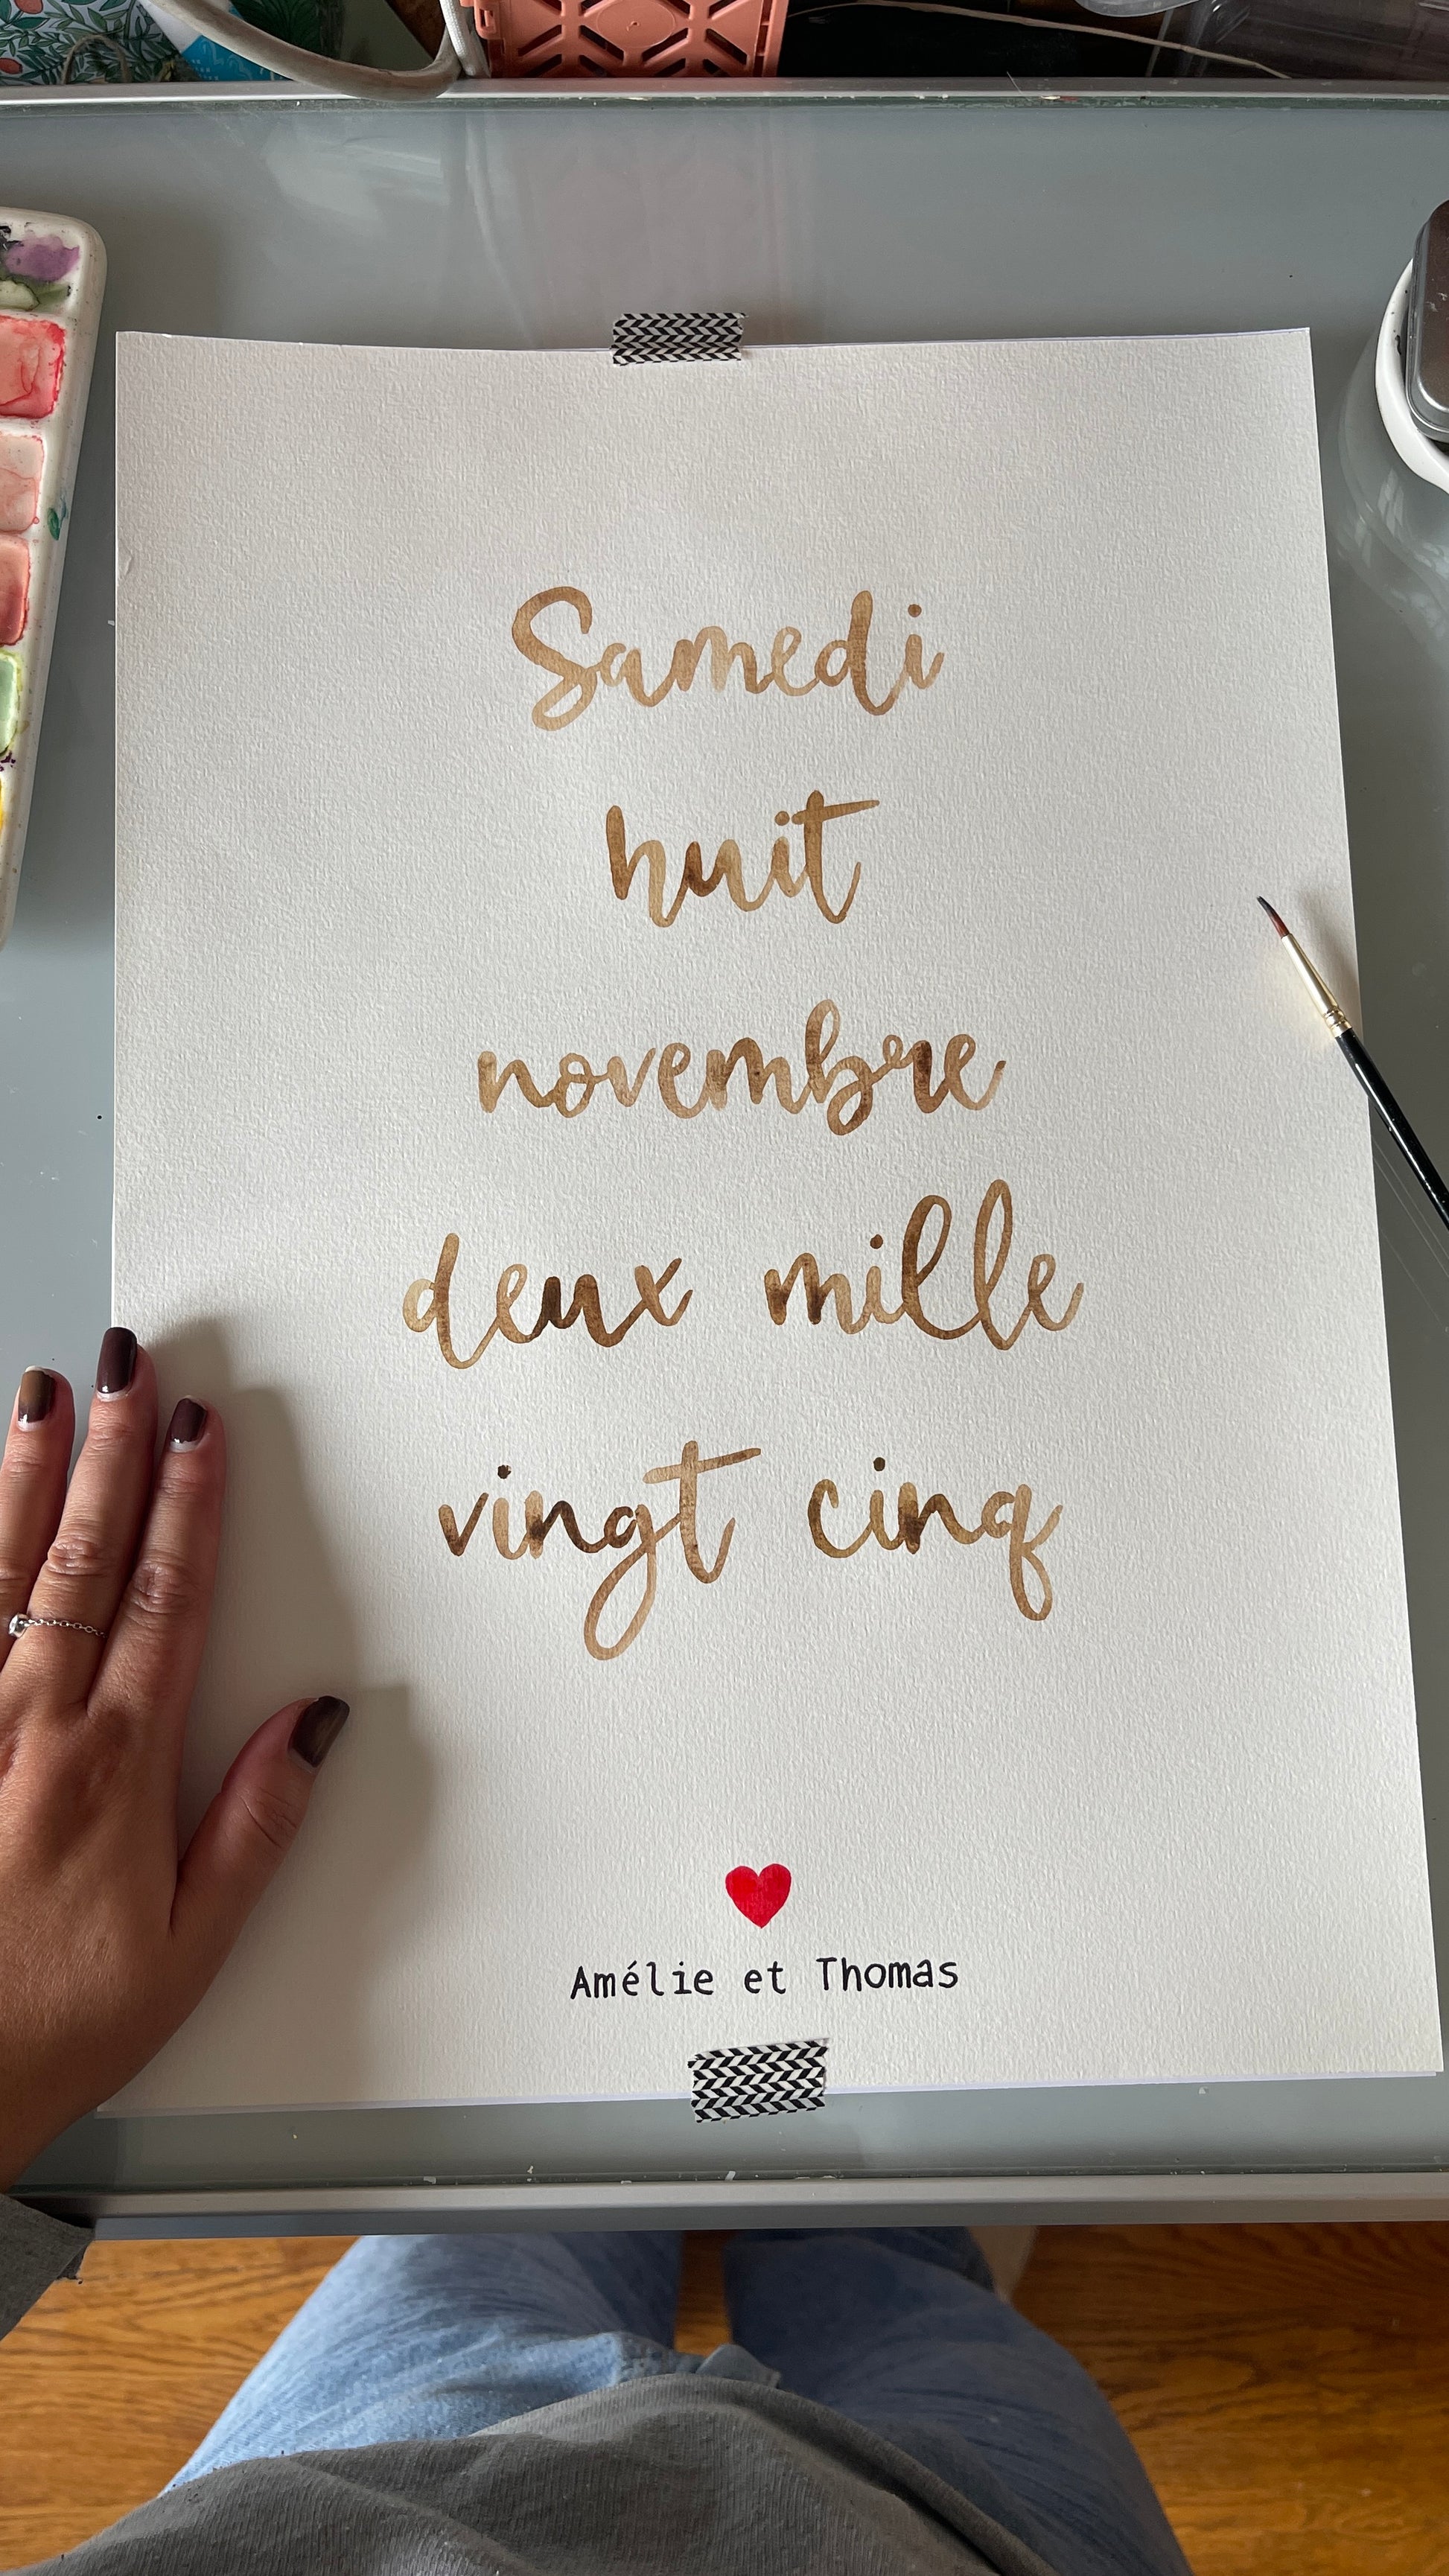 Samedi
huit
novembre
deux mille
vingt cinq
Amélie et Thomas